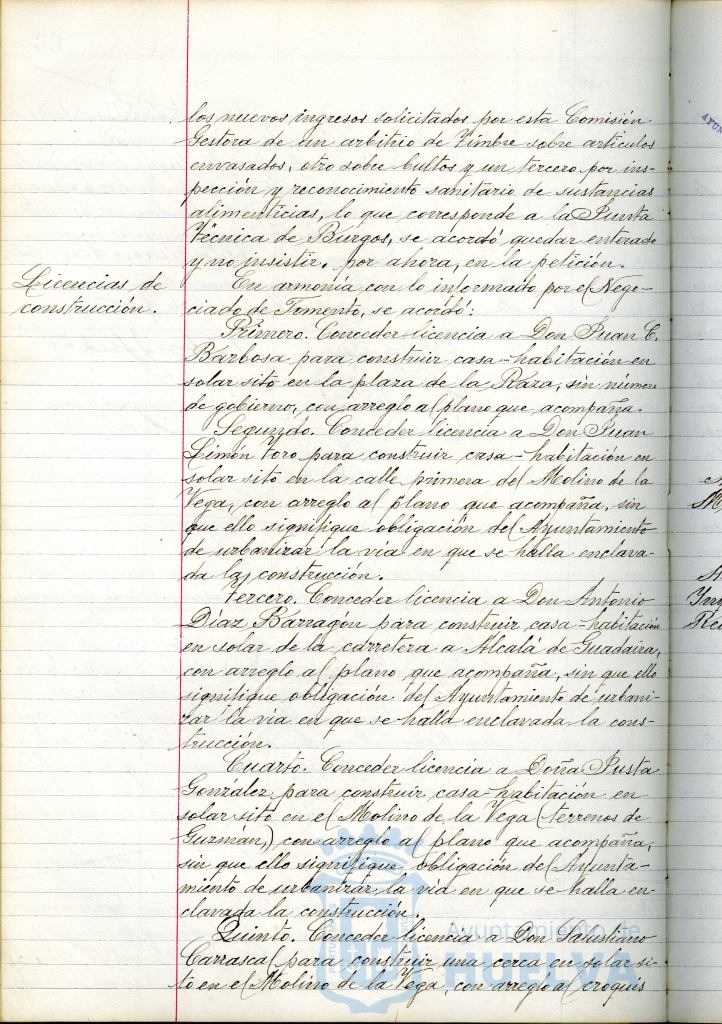 los nuevos ingresos solicitados por esta Comisión
Gestora de un arbitrio de Timbre sobre artículos
envasados, otro sobre bultos y un tercero por ins-
pección y reconocimiento sanitario de sustancias
alimenticias, lo que corresponde a la Junta
Técnica de Burgos, se acordó quedar enterado
y no insistir, por ahora, en la petición.
Licencias de
construcción.
En armonía con lo informado por el Nego-
ciado de Fomento, se acordó:
Primero. Conceder licencia a Don Juan C.
Barbosa para construir casa-habitación en
solar sito en la plaza de la Raza, sin número
de gobierno, con arreglo al plano que acompaña.
Segundo. Conceder licencia a Don Juan
Limón Toro para construir casa-habitación en
solar sito en la calle primera del Molino de la
Vega, con arreglo al plano que acompaña, sin
que ello signifique obligación del Ayuntamiento
de urbanizar la vía en que se halla enclava-
da la construcción.
Tercero. Conceder licencia a Don Antonio
Díaz Barragón para construir casa-habitación
en solar de la carretera a Alcalá de Guadaira,
con arreglo al plano que acompaña, sin que ello
signifique obligación del Ayuntamiento de urbani-
zar la vía en que se halla enclavada la cons-
trucción.
Cuarto. Conceder licencia a Doña Justa
Gonzalez para construir casa-habitación en
solar sito en el Molino de la Vega (terrenos de
Guzmán,) con arreglo al plano que acompaña,
sin que ello signifique obligación del Ayunta-
miento de urbanizar la vía en que se halla en-
clavada la construcción.
Quinto. Conceder licencia a Don Salustiano
Carrascal para construir una cerca en solar si-
to en el Molino de la Vega, con arreglo al croquis
Ayuntamiento de
HUELVA